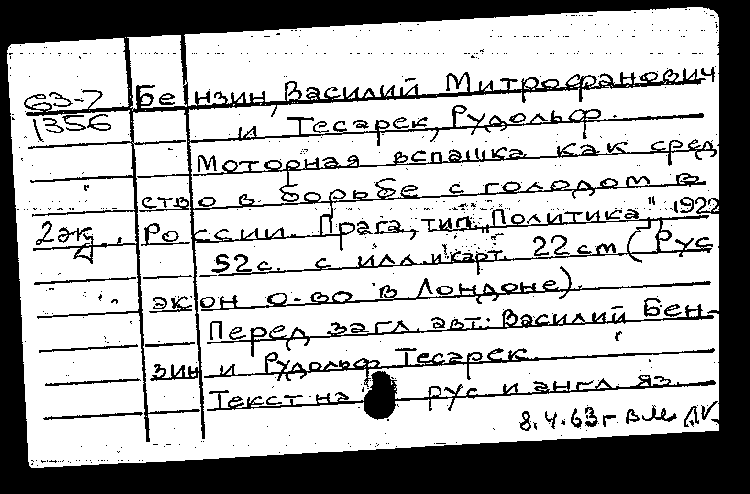 63-7 Бензин, Василий Митрофанович
1356 и Тесарек, Рудольф.
Моторная вспашка как сред
ство в борьбе с голодом в
2 экз. России. Прага, тип. „Политика", 1922
52 с. с илл. и карт. 22 cm (Рус
экон о-во в Лондоне).
Перед загл. авт.: Василий Бен-
зин и Рудольф Тесарек.
Текст на рус и англ. яз.
8.4.63 г